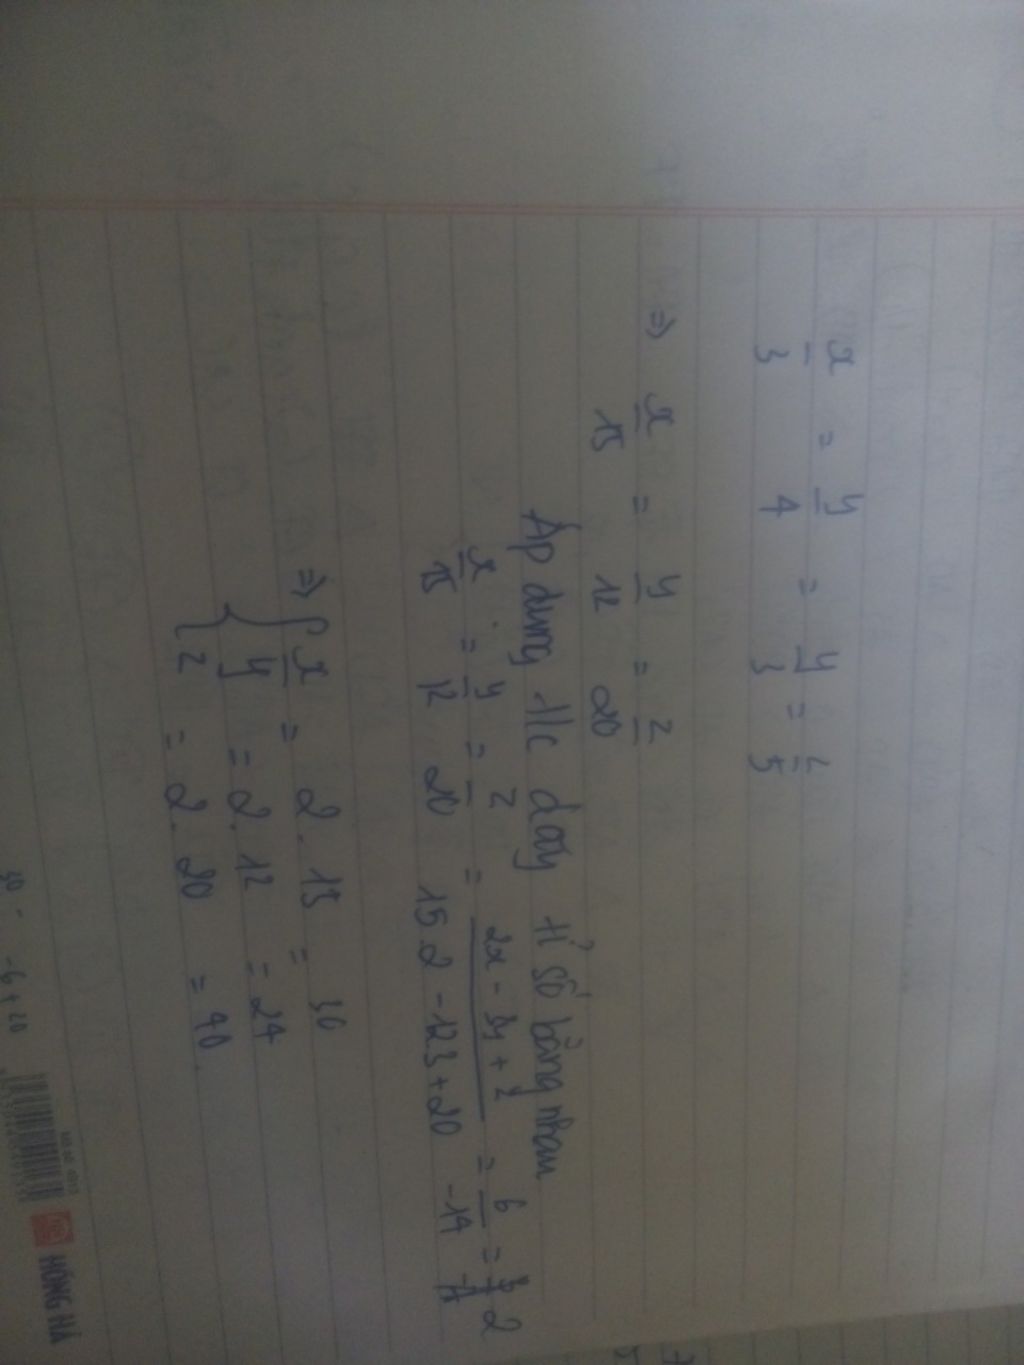 x/3 = y/4 = y/3 = z/5
=> x/15 = y/12 = z/20
Áp dụng t/c dãy tỉ số bằng nhau
x/15 = y/12 = z/20 = 2x - 3y + z / 15.2 - 12.3 + 20 = 6/-14 = 2
=> { x = 2.15 = 30
y = 2.12 = 24
z = 2.20 = 40
30 - -6 + 20
HỒNG HÀ